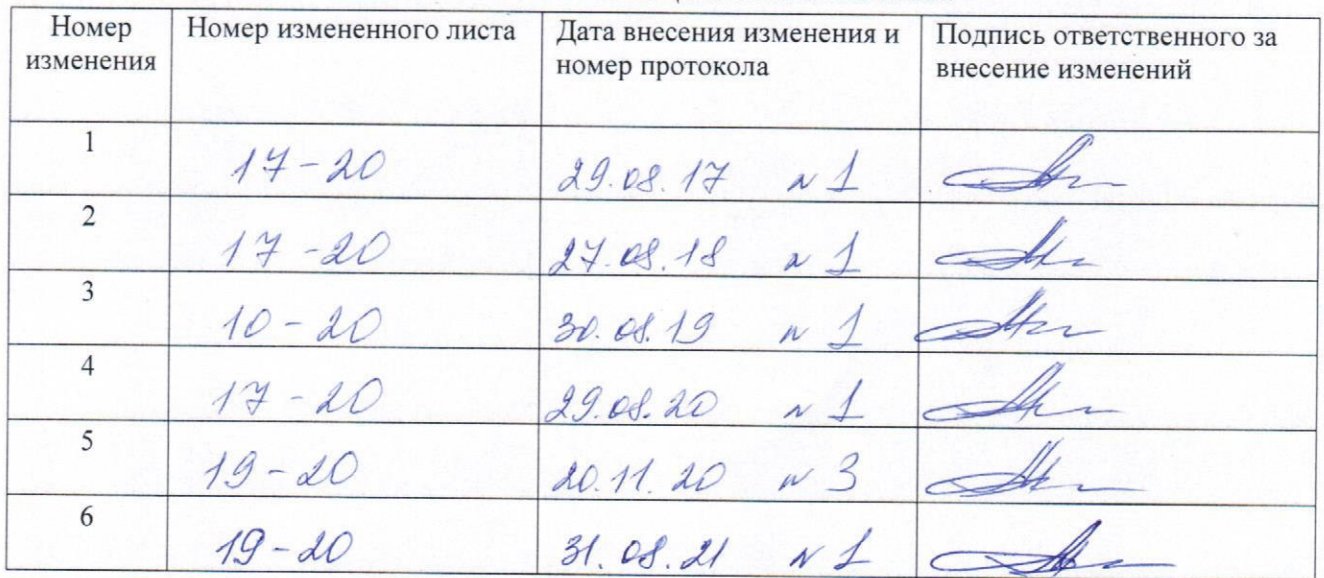 Номер изменения | Номер измененного листа | Дата внесения изменения и номер протокола | Подпись ответственного за внесение изменений
1 | 17-20 | 29.08.17 № 1
2 | 17-20 | 27.08.18 № 1
3 | 10-20 | 30.08.19 № 1
4 | 17-20 | 29.08.20 № 1
5 | 19-20 | 20.11.20 № 3
6 | 19-20 | 31.08.21 № 1